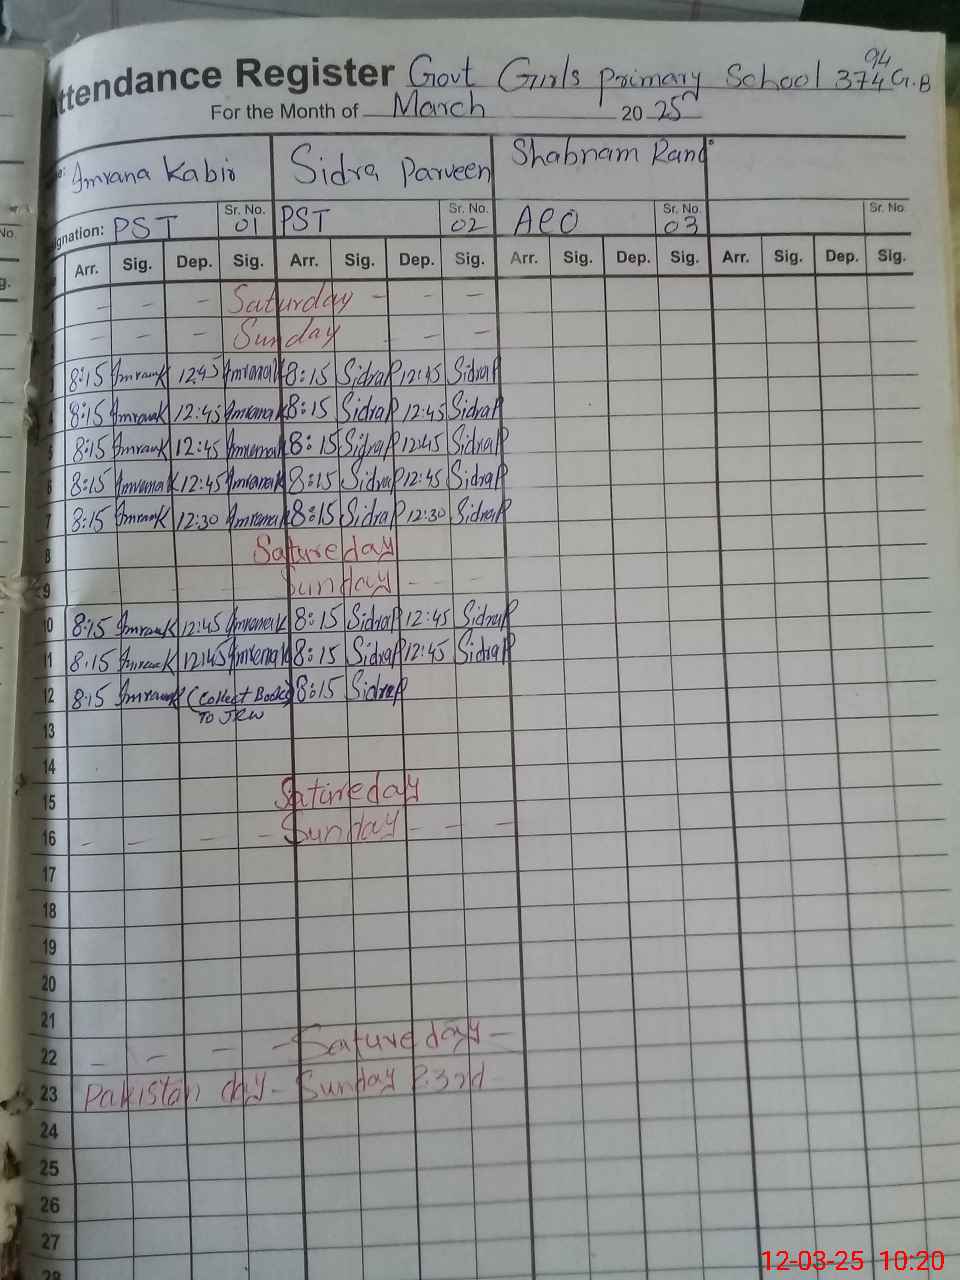 ttendance Register Govt Girls Primary School 374 G.B
94
For the Month of March 2025
Imrana Kabir Sidra Parveen Shabnam Rand
gnation: PST Sr. No. 01 PST Sr. No. 02 AEO Sr. No. 03 Sr. No.
Arr. Sig. Dep. Sig. Arr. Sig. Dep. Sig. Arr. Sig. Dep. Sig. Arr. Sig. Dep. Sig.
- - - Saturday - - -
- - - Sunday - -
3 8:15 ImranaK 12:45 ImranaK 8:15 SidraP 12:45 SidraP
4 8:15 ImranaK 12:45 ImranaK 8:15 SidraP 12:45 SidraP
5 8:15 ImranaK 12:45 ImranaK 8:15 SidraP 12:45 SidraP
6 8:15 ImranaK 12:45 ImranaK 8:15 SidraP 12:45 SidraP
7 8:15 ImranaK 12:30 ImranaK 8:15 SidraP 12:30 SidraP
8 Satureday
9 - - - - Sunday - - -
10 8:15 ImranaK 12:45 ImranaK 8:15 SidraP 12:45 SidraP
11 8:15 ImranaK 12:45 ImranaK 8:15 SidraP 12:45 SidraP
12 8:15 ImranaK (Collect Books 8:15 SidraP
To JRW
13
14
15 Satireday
16 - - - - Sunday - - -
17
18
19
20
21
22 - - - - Satureday -
23 Pakistan day - Sunday 23rd
24
25
26
27
28
12-03-25 10:20